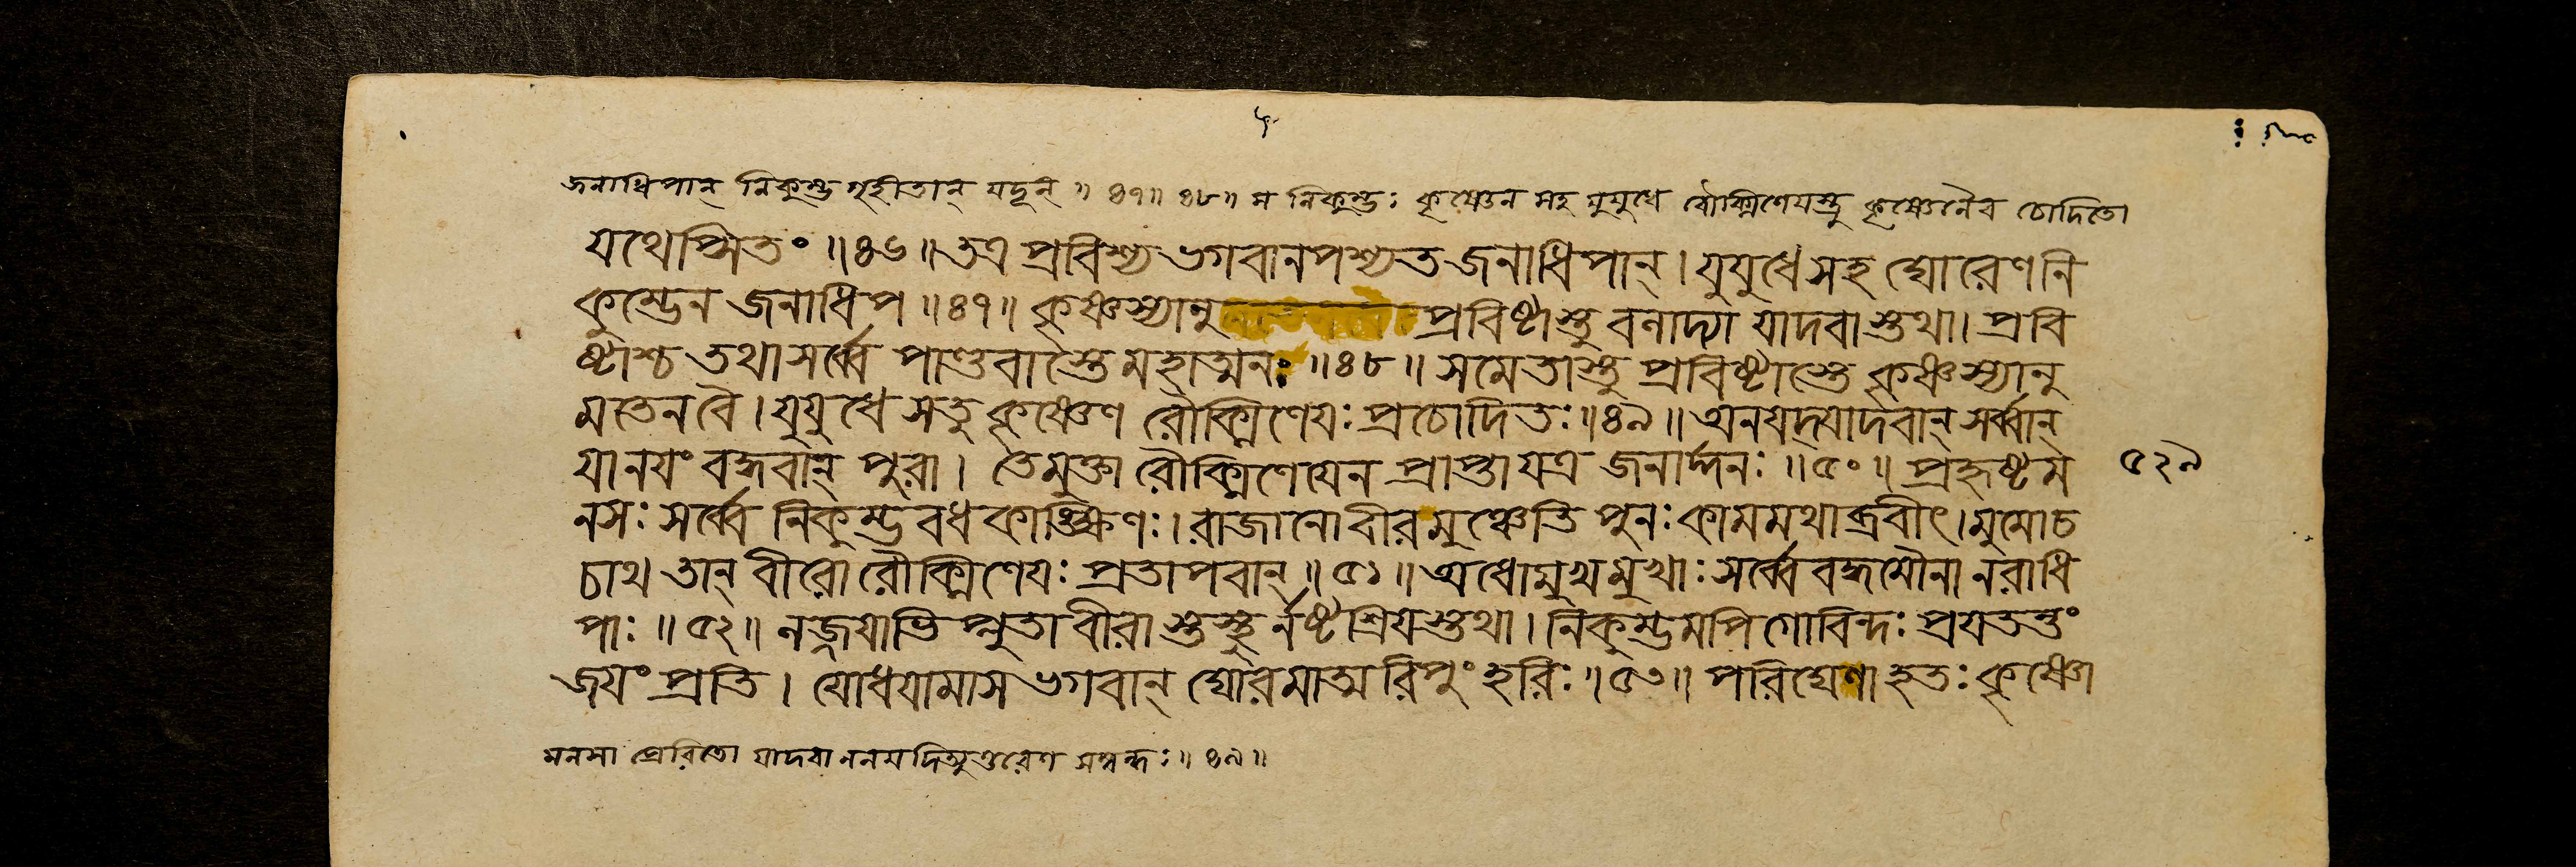 জনাধিপান্ নিকুম্ভ গৃহীতান্ যদূন্ ॥ ৪৭॥ ৪৮॥ স নিকুম্ভঃ কৃষ্ণেন সহ যুযুধে রৌক্মিণেযস্তু কৃষ্ণেনৈব চোদিতো
যথেপ্সিতং ॥৪৬॥ তত্র প্রবিশ্য ভগবানপশ্যত জনাধিপান্। যুযুধে সহ ঘোরেণ নি
কুম্ভেন জনাধিপ ॥৪৭॥ কৃষ্ণস্যানু প্রবিষ্টাস্তু বলাদ্যা যাদবাস্তথা। প্রবি
ষ্টাশ্চ তথা সর্ব্বে পাণ্ডবাস্তে মহাত্মনঃ ॥৪৮॥ সমেতাস্তু প্রবিষ্টাস্তে কৃষ্ণস্যানু
মতেন বৈ। যুযুধে সতু কৃষ্ণেণ রৌক্মিণেযঃ প্রচোদিতঃ ॥৪৯॥ অনযদ্যাদবান্ সর্ব্বান্
যানযং বদ্ধবান্ পুরা। তে মুক্তা রৌক্মিণেযেন প্রাপ্তা যত্র জনার্দ্দনঃ ॥৫০॥ প্রহৃষ্টম
৫২৯
নসঃ সর্ব্বে নিকুম্ভবধকাঙ্ক্ষিণঃ। রাজানো বীর মুঞ্চেতি পুনঃ কামমথাব্রবীৎ। মুমোচ
চাথ তান্ বীরো রৌক্মিণেযঃ প্রতাপবান্ ॥৫১॥ অধোমুখমুখাঃ সর্ব্বে বদ্ধমৌনা নরাধি
পাঃ ॥৫২॥ লজ্জযাভিপ্লুতা বীরাস্তস্থুর্নষ্টশ্রিযস্তথা। নিকুম্ভমপি গোবিন্দঃ প্রযতন্তং
জযং প্রতি। যোধযামাস ভগবান্ ঘোরমাত্মরিপুং হরিঃ ॥৫৩॥ পরিঘেণাহতঃ কৃষ্ণো
মনসা প্রেরিতো যাদবা ॥ ৪৯॥